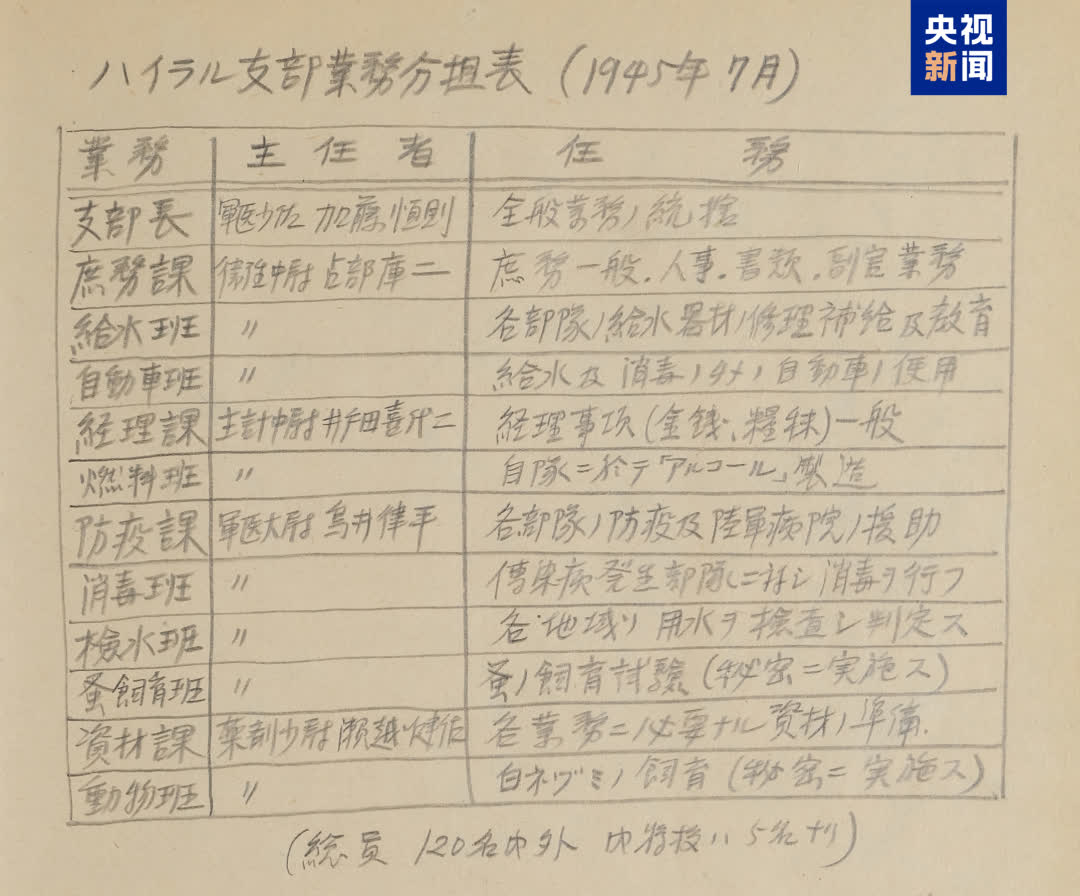 央视
新闻
ハイラル支部業務分担表 (1945年7月)
業務 主任者 任務
支部長 軍医少佐 加藤恒則 全般業務ノ統括
庶務課 衛生中尉 占部庫二 庶務一般.人事.書類.副官業務
給水班 〃 各部隊ノ給水器材ノ修理補給及教育
自動車班 〃 給水及消毒ノタメノ自動車ノ使用
経理課 主計中尉 井戸田喜代二 経理事項(金銭、糧秣)一般
燃料班 〃 自隊ニ於テ「アルコール」製造
防疫課 軍医大尉 鳥井律平 各部隊ノ防疫及陸軍病院ノ援助
消毒班 〃 傳染病発生部隊ニ対シ消毒ヲ行フ
檢水班 〃 各地域ノ用水ヲ檢査シ判定ス
蚤飼育班 〃 蚤ノ飼育試驗(秘密ニ実施ス)
資材課 薬剤少尉 瀬越健佑 各業務ニ必要ナル資材ノ準備.
動物班 〃 白ネヅミノ飼育(秘密ニ実施ス)
(総員 120名内外 内将校ハ5名ナリ)